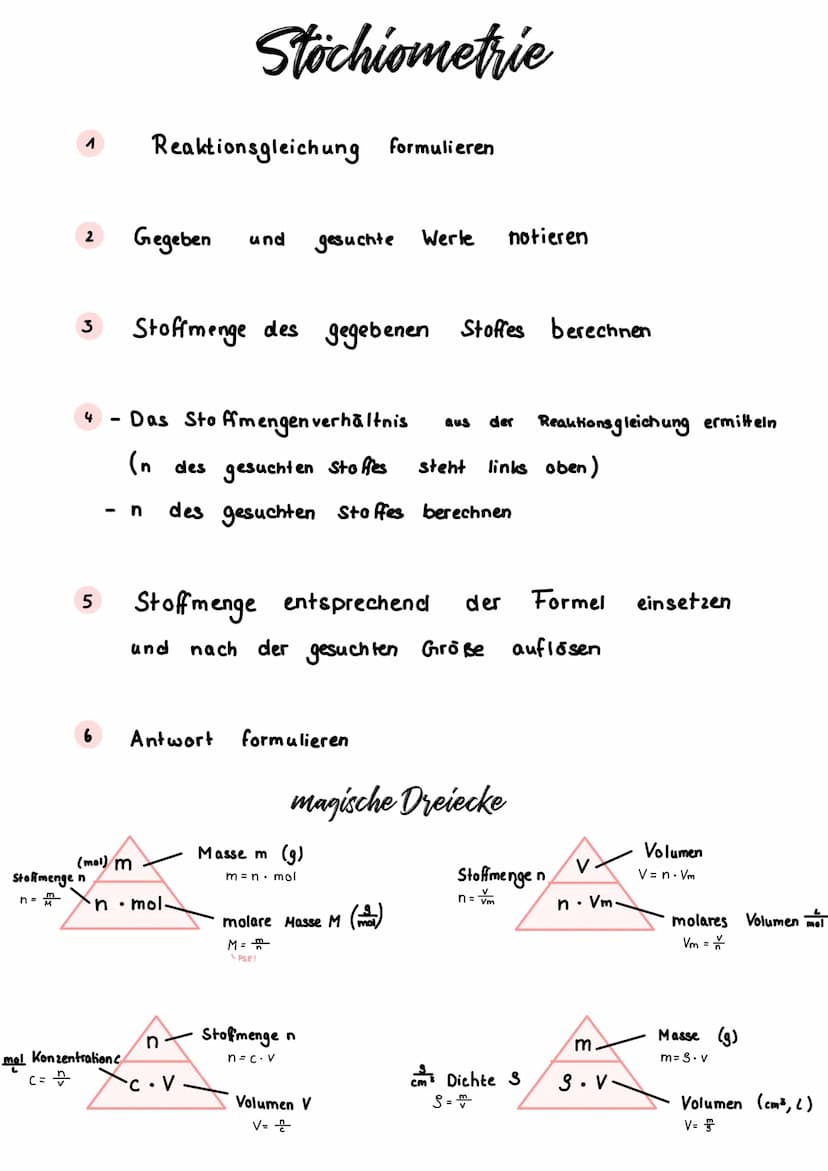 Stöchiometrie
1 Reaktionsgleichung formulieren
2 Gegeben und gesuchte Werte notieren
3 Stoffmenge des gegebenen Stoffes berechnen
4 - Das Stoffmengenverhältnis aus der Reaktionsgleichung ermitteln
(n des gesuchten Stoffes steht links oben)
- n des gesuchten Stoffes berechnen
5 Stoffmenge entsprechend der Formel einsetzen
und nach der gesuchten Größe auflösen
6 Antwort formulieren
magische Dreiecke
(mol)
Stoffmenge n
n = m/M
m
n · mol
Masse m (g)
m = n · mol
molare Masse M (g/mol)
M = m/n
PSE!
Stoffmenge n
n = V/Vm
V
n · Vm
Volumen
V = n · Vm
molares Volumen L/mol
Vm = V/n
mol/L Konzentration c
c = n/V
n
c · V
Stoffmenge n
n = c · V
Volumen V
V = n/c
g/cm³ Dichte ρ
ρ = m/V
m
ρ · V
Masse (g)
m = ρ · V
Volumen (cm³, L)
V = m/ρ